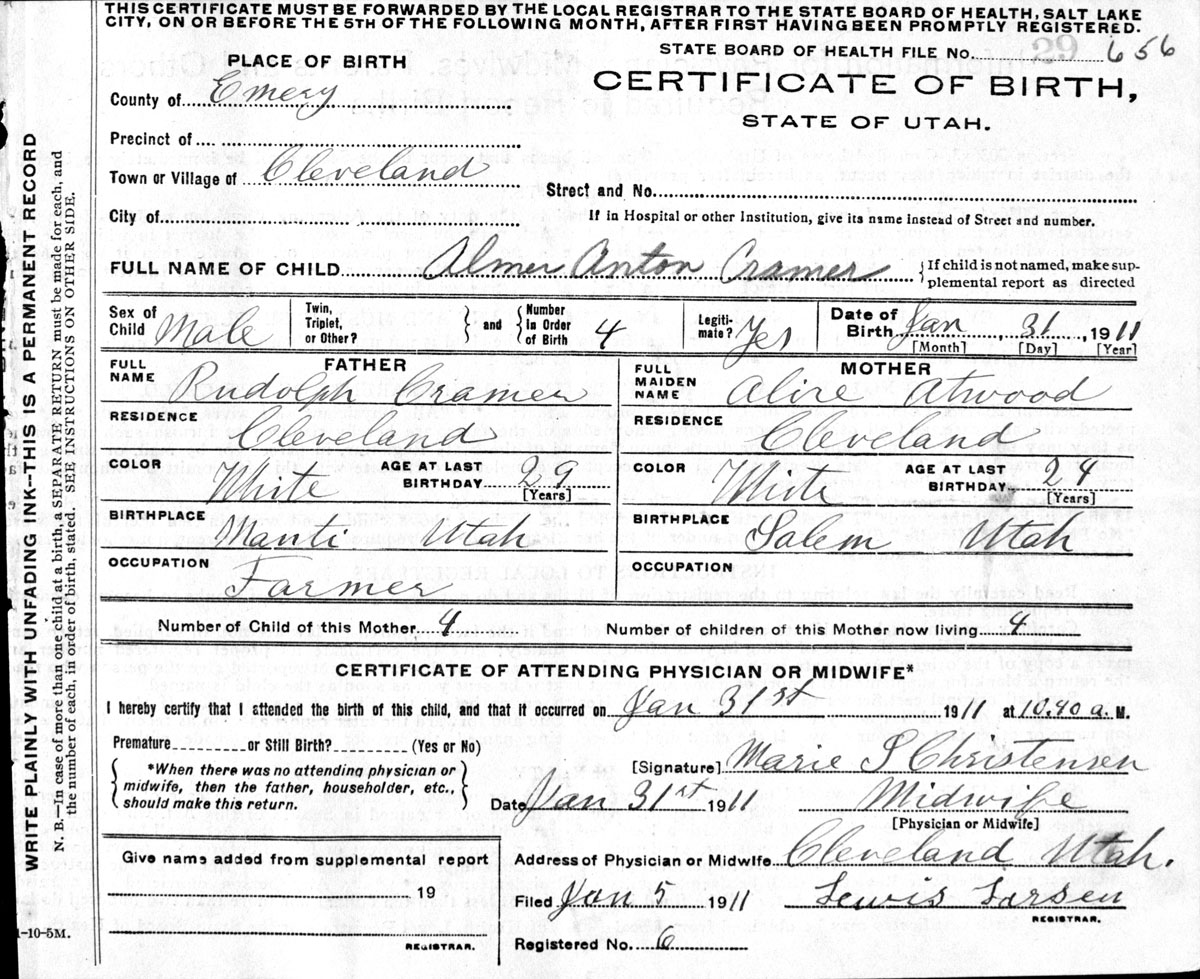 THIS CERTIFICATE MUST BE FORWARDED BY THE LOCAL REGISTRAR TO THE STATE BOARD OF HEALTH, SALT LAKE
CITY, ON OR BEFORE THE 5TH OF THE FOLLOWING MONTH, AFTER FIRST HAVING BEEN PROMPTLY REGISTERED.
STATE BOARD OF HEALTH FILE No. 656
PLACE OF BIRTH
CERTIFICATE OF BIRTH,
STATE OF UTAH.
County of Emery
Precinct of
Town or Village of Cleveland
Street and No.
City of
If in Hospital or other Institution, give its name instead of Street and number.
FULL NAME OF CHILD Almer Anton Cramer { If child is not named, make sup-
plemental report as directed
Sex of Child Male
Twin, Triplet, or Other? } and { Number in Order of Birth 4
Legiti-mate? Yes
Date of Birth Jan 31, 1911
[Month] [Day] [Year]
FATHER
FULL NAME Rudolph Cramer
RESIDENCE Cleveland
COLOR White AGE AT LAST BIRTHDAY 29
[Years]
BIRTHPLACE Manti Utah
OCCUPATION Farmer
MOTHER
FULL MAIDEN NAME Alire Atwood
RESIDENCE Cleveland
COLOR White AGE AT LAST BIRTHDAY 24
[Years]
BIRTHPLACE Salem Utah
OCCUPATION
Number of Child of this Mother 4 Number of children of this Mother now living 4
CERTIFICATE OF ATTENDING PHYSICIAN OR MIDWIFE*
I hereby certify that I attended the birth of this child, and that it occurred on Jan 31st 1911 at 10.40 a. M.
Premature or Still Birth? (Yes or No)
*When there was no attending physician or
midwife, then the father, householder, etc.,
should make this return.
[Signature] Marie S Christensen
Date Jan 31st 1911 Midwife
[Physician or Midwife]
Give name added from supplemental report
19
REGISTRAR.
Address of Physician or Midwife Cleveland Utah.
Filed Jan 5 1911 Lewis Larsen
REGISTRAR.
Registered No. 6
1-10-5M.
WRITE PLAINLY WITH UNFADING INK--THIS IS A PERMANENT RECORD
N. B.—In case of more than one child at a birth, a SEPARATE RETURN must be made for each, and
the number of each, in order of birth, stated. SEE INSTRUCTIONS ON OTHER SIDE.